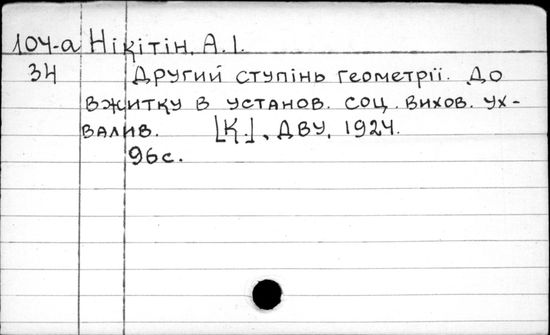 104-а Нікітін, А.І.
34 Другий ступінь геометрії. До
вжитку в установ. соц. вихов. ух-
валив. [К.], ДВУ, 1924.
96с.